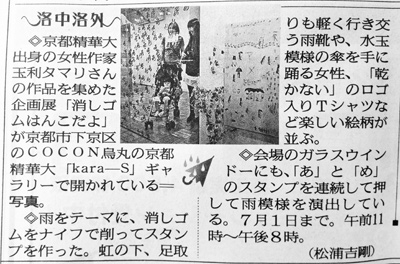 洛中洛外
◇京都精華大
出身の女性作家
玉利タマリさん
の作品を集めた
企画展「消しゴ
ムはんこだよ」
が京都市下京区
のCOCON烏丸の京都
精華大「kara―S」ギャ
ラリーで開かれている＝
写真。
◇雨をテーマに、消しゴ
ムをナイフで削ってスタン
プを作った。虹の下、足取
りも軽く行き交
う雨靴や、水玉
模様の傘を手に
踊る女性、「乾
かない」のロゴ
入りTシャツな
ど楽しい絵柄が
並ぶ。
◇会場のガラスウイン
ドーにも、「あ」と「め」
のスタンプを連続して押
して雨模様を演出してい
る。7月1日まで。午前11
時～午後8時。
（松浦吉剛）